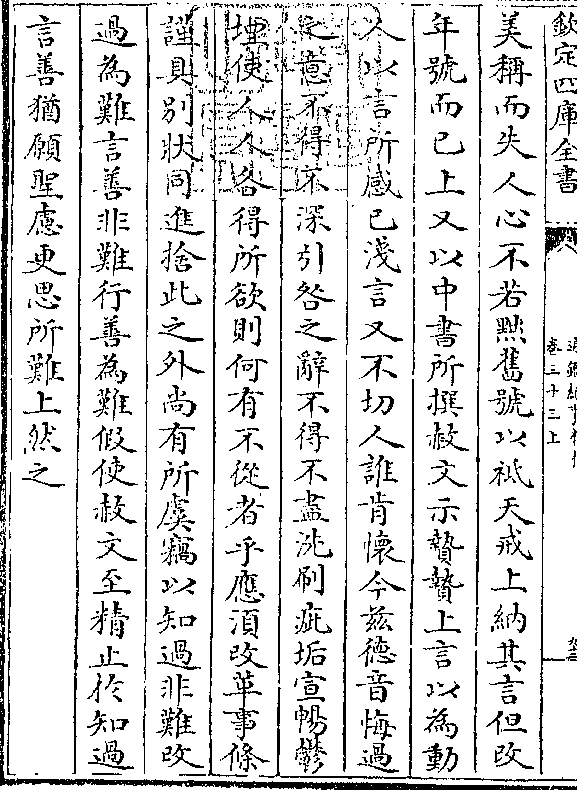 欽定四庫全書
卷三十三上
美稱而失人心不若黙舊號以祗天戒上納其言但改
年號而已上又以中書所撰赦文示贄贄上言以為動
人以言所感已淺言又不切人誰肯懷今兹德音悔過
之意不得不深引咎之辭不得不盡洗刷疵垢宣暢鬱
堙使人人各得所欲則何有不從者乎應須改革事條
謹具别狀同進捨此之外尚有所虞竊以知過非難改
過為難言善非難行善為難假使赦文至精止於知過
言善猶願聖慮更思所難上然之